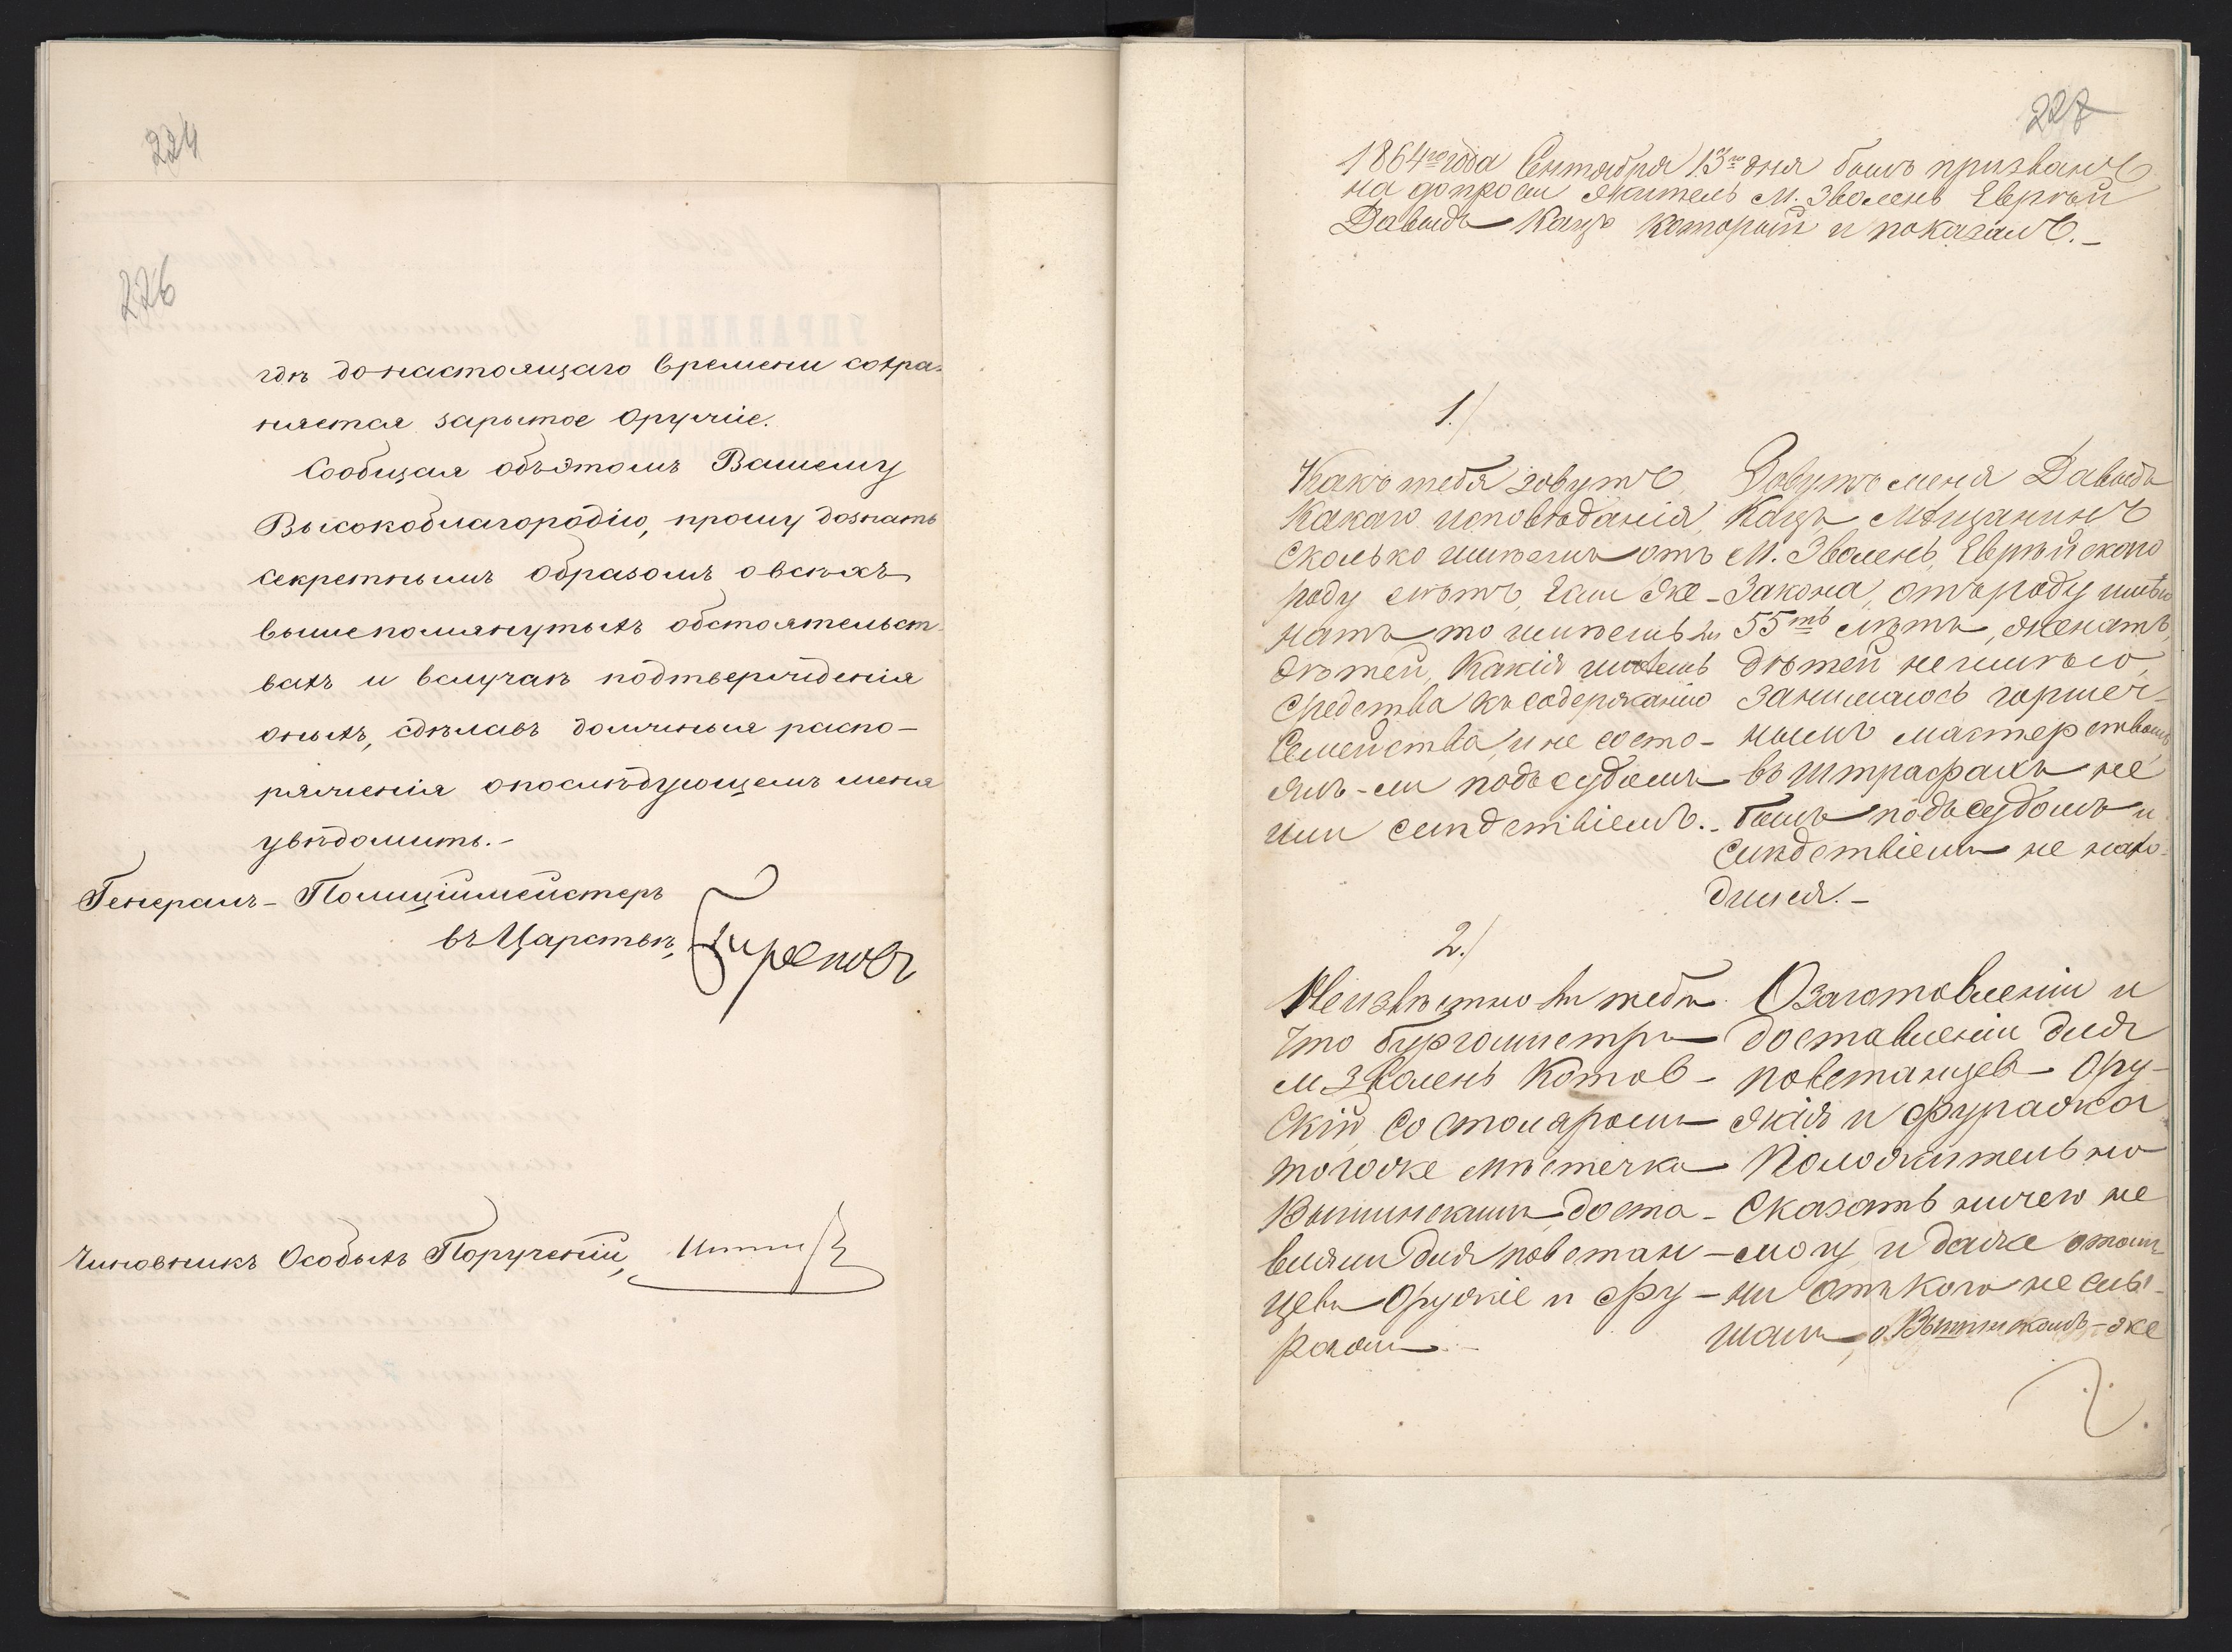 224
226
гдѣ до настоящаго времени сохра-
няется зарытое оружіе.
Сообщая объ этомъ Вашему
Высокоблагородію, прошу дознать
секретнымъ образомъ о всѣхъ
вышепомянутыхъ обстоятельст-
вахъ и въ случаѣ подтвержденія
оныхъ, сдѣлавъ должныя распо-
ряженія о послѣдующемъ меня
увѣдомить.-
Генералъ-Полиціймейстеръ
въ Царствѣ,
Чиновникъ Особыхъ Порученій,
227
1864го года Сентября 13го дня былъ призванъ
на допросъ житель М. Зволень Еврей
Давыдъ Кацъ который и показалъ.-
1./
Какъ тебя зовутъ
Какаго исповѣданія,
Сколько имѣешь отъ
роду лѣтъ, Еслы же-
натъ то имѣешь ли
дѣтей, Какія имѣешь
средства къ содержанію
Семейства, и не состо-
ялъ-ли подъ судомъ
или слѣдствіемъ.-
Зовутъ меня Давыдъ
Кацъ, мѣщанинъ
М. Зволень, Еврейскаго
Закона, отъ роду имѣю
55ть лѣтъ, женатъ,
дѣтей не имѣю,
занимаюсь горшеч-
нымъ мастерствомъ,
въ штрафахъ не
былъ подъ судомъ и
слѣдствіемъ не нахо-
дился.-
2./
Неизвѣстно ли тебѣ
Что бургомистръ
М. Зволень Котов-
скій со столяромъ
того же мѣстечка
Вышинскимъ доста-
вляли для повстан-
цевъ Оружіе и фу-
ражъ.-
О заготовленіи и
доставленіи для
повстанцевъ Ору-
жія и фуража
Положительно
Сказать ничего не
могу и даже о томъ
ни отъ кого не слы-
шалъ, о Вышинскомъ-же